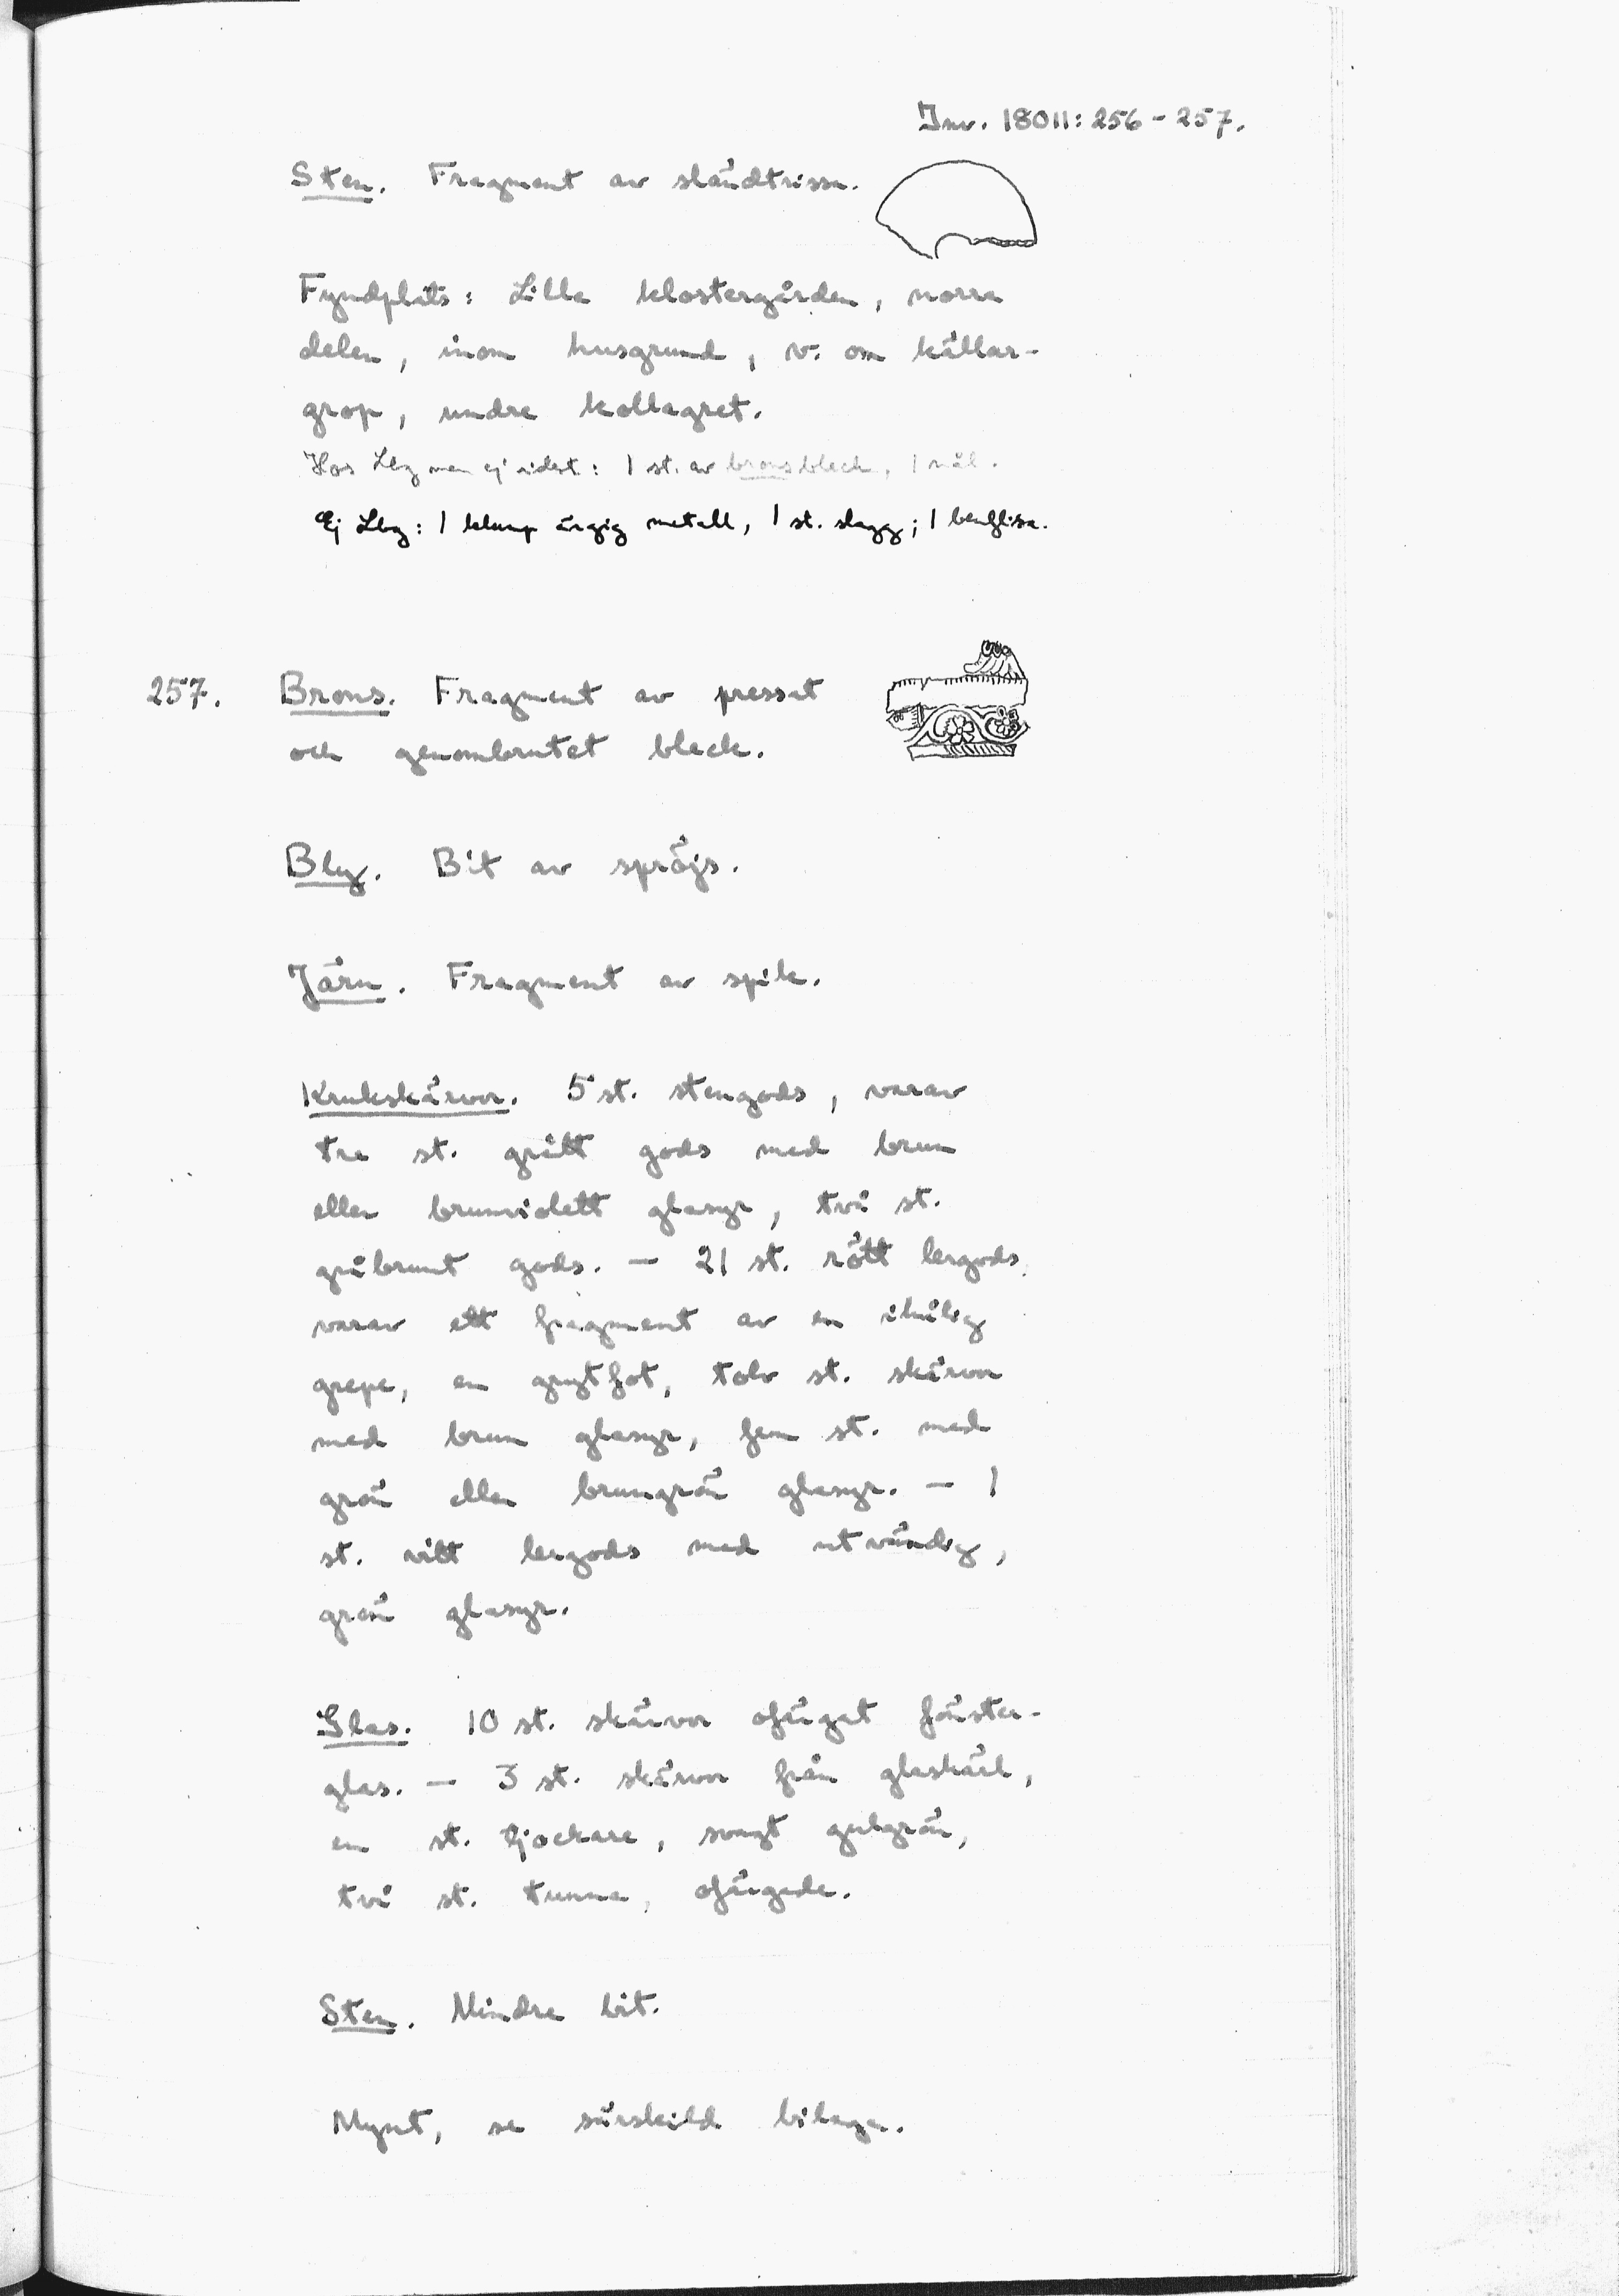 Inv. 18011: 256 - 257.
Sten. Fragment av sländtrissa.
Fyndplats: Lilla klostergården, norra
delen, inom husgrund, v. om källar-
grop, undre kollagret.
Hos Lbg men ej sidst: 1 st. av bronsbleck, 1 nål.
Ej Lbg: 1 klump ärgig metall, 1 st. slagg; 1 benflisa.
257. Brons. Fragment av pressat
och genombrutet bleck.
Bly. Bit av spröjs.
Järn. Fragment av spik.
Krukskärvor. 5 st. stengods, varav
tre st. grått gods med brun
eller brunviolett glasyr, två st.
gråbrunt gods. — 21 st. rött lergods,
varav ett fragment av en ihålig
grepe, en grytfot, tolv st. skärvor
med brun glasyr, fem st. med
grön eller brungrön glasyr. — 1
st. vitt lergods med utvändig,
grön glasyr.
Glas. 10 st. skärvor ofärgat fönster-
glas. — 3 st. skärvor från glaskärl,
en st. tjockare, svagt gulgrön,
två st. tunna, ofärgade.
Sten. Mindre bit.
Mynt, se särskild bilaga.